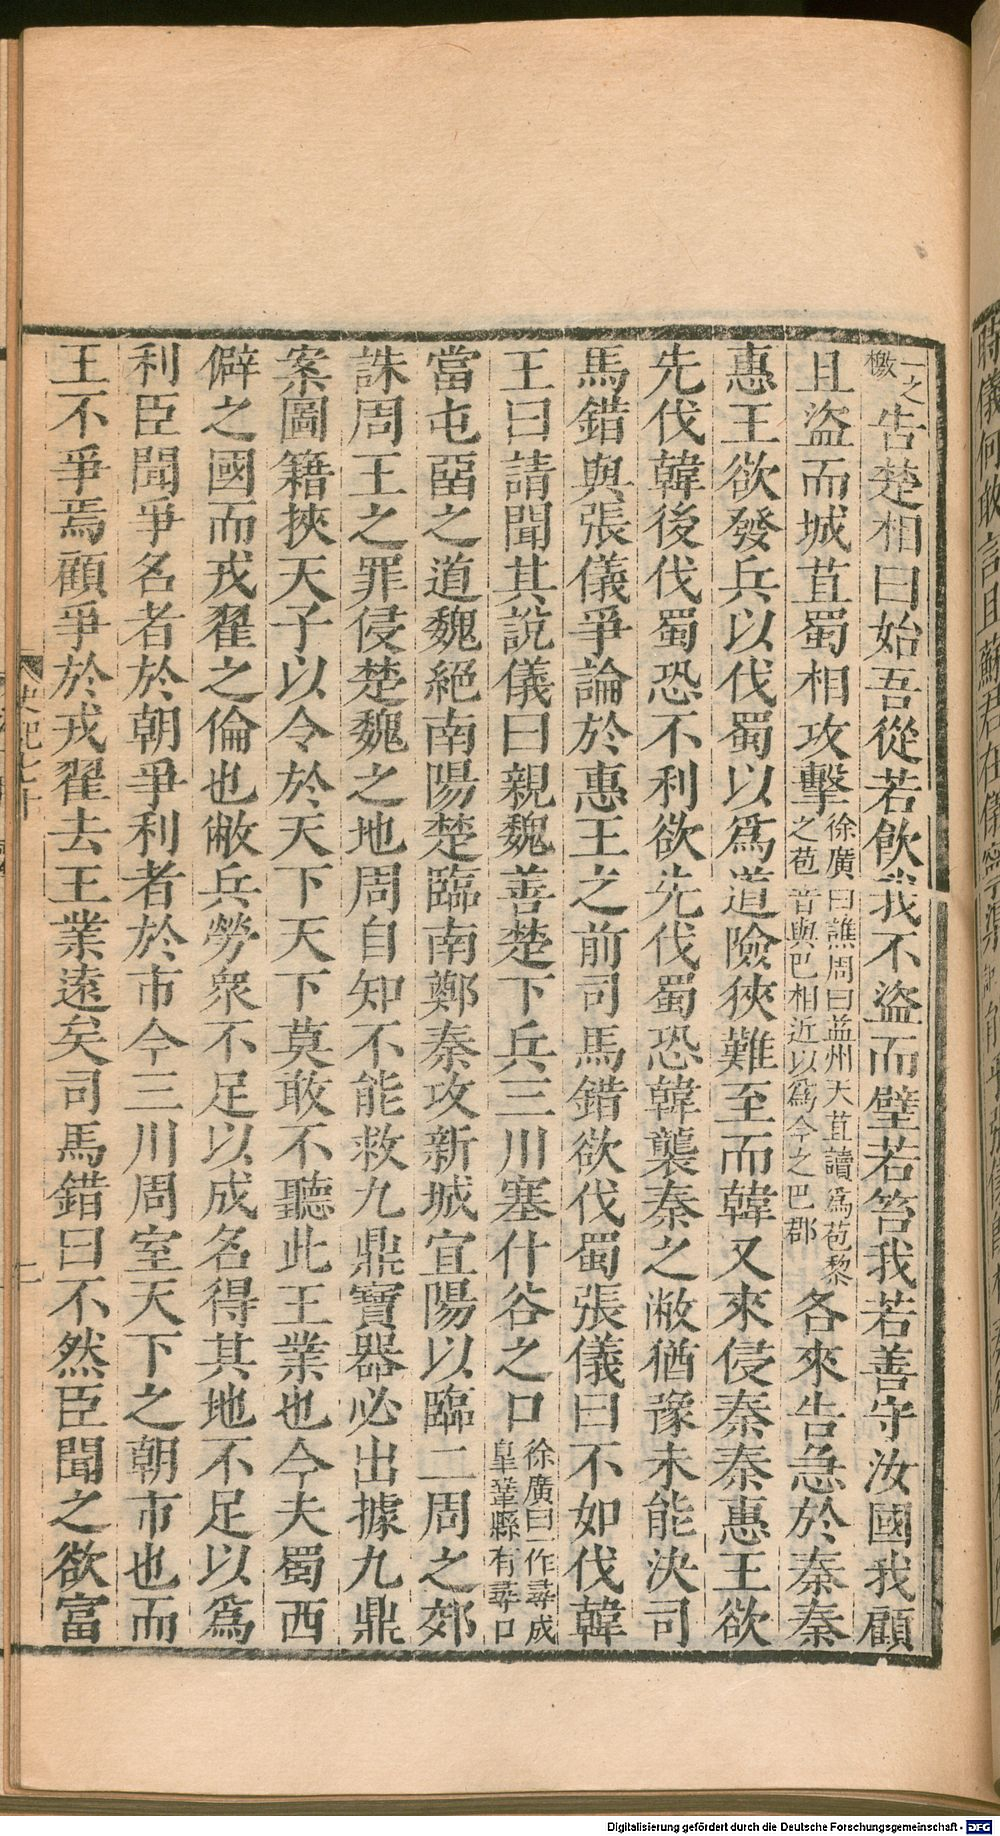 一之檄告楚相曰始吾從若飲我不盜而璧若笞我若善守汝國我顧
且盜而城苴蜀相攻擊徐廣曰譙周曰益州天苴讀爲苞黎之苞音與巴相近以爲今之巴郡各來告急於秦秦
惠王欲發兵以伐蜀以爲道險狹難至而韓又來侵秦秦惠王欲
先伐韓後伐蜀恐不利欲先伐蜀恐韓襲秦之敝猶豫未能決司
馬錯與張儀爭論於惠王之前司馬錯欲伐蜀張儀曰不如伐韓
王曰請聞其說儀曰親魏善楚下兵三川塞什谷之口徐廣曰一作尋成皋鞏縣有尋口
當屯畱之道魏絕南陽楚臨南鄭秦攻新城宜陽以臨二周之郊
誅周王之罪侵楚魏之地周自知不能救九鼎寶器必出據九鼎
案圖籍挾天子以令於天下天下莫敢不聽此王業也今夫蜀西
僻之國而戎翟之倫也敝兵勞衆不足以成名得其地不足以爲
利臣聞爭名者於朝爭利者於市今三川周室天下之朝市也而
王不爭焉顧爭於戎翟去王業遠矣司馬錯曰不然臣聞之欲富
史記七十
二
Digitalisierung gefördert durch die Deutsche Forschungsgemeinschaft - DFG